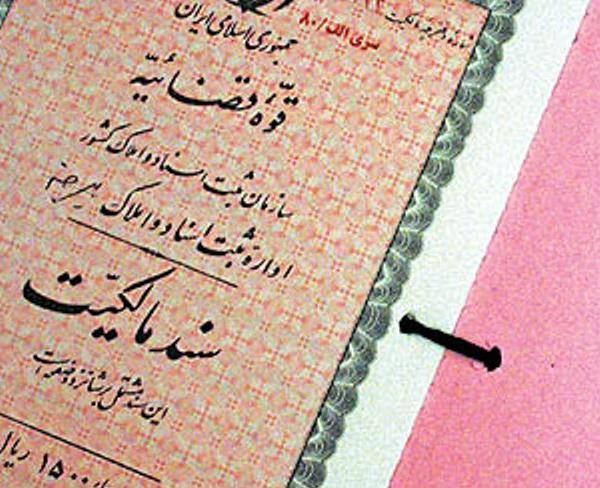 شماره دفترچه مالکیت
سری الف/۸۰
جمهوری اسلامی ایران
قوّهٔ قضائیّه
سازمان ثبت اسناد و املاک کشور
ادارهٔ ثبت اسناد و املاک بیرجند
سند مالکیّت
این سند مشتمل بر شانزده صفحه است
۱۵۰۰ ریال